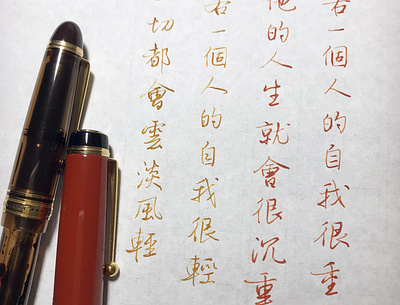 若一個人的自我很重
他的人生就會很沉重
若一個人的自我很輕
一切都會雲淡風輕